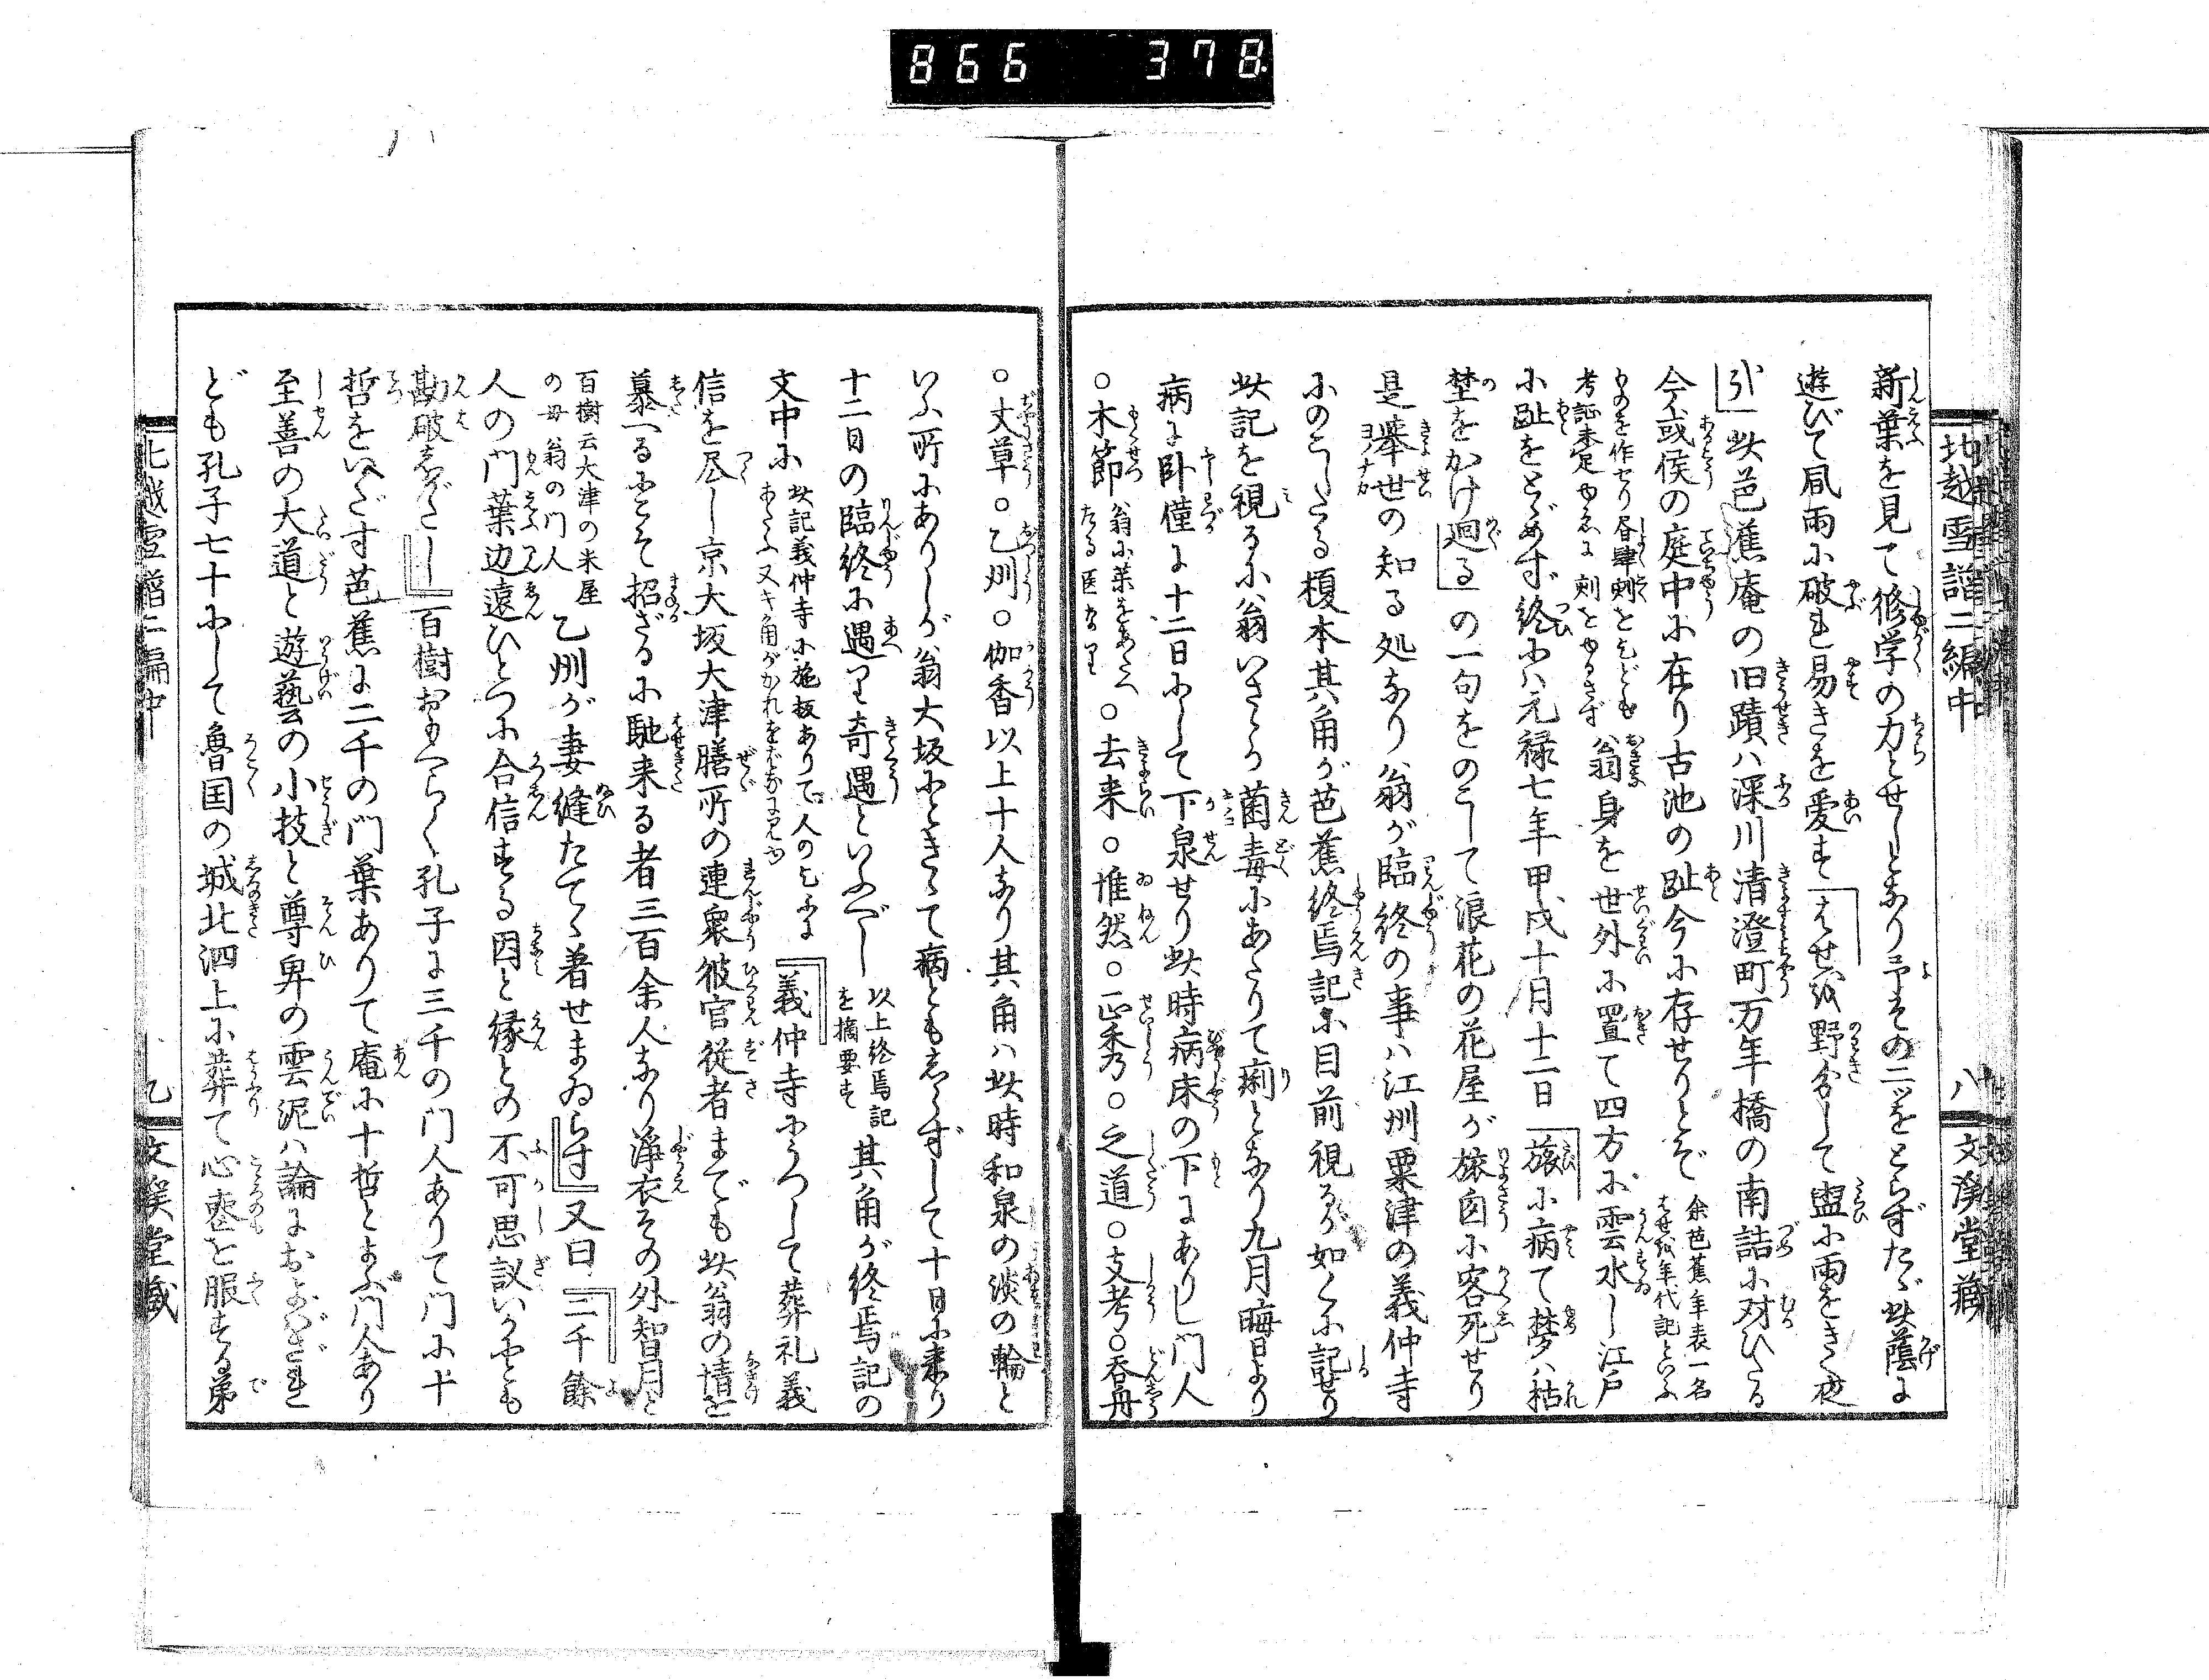 866 378.
北越雪譜二編中 八 文溪堂蔵
新葉を見て修学の力とせしとなり予その二ツをとらずたゞ此蔭に
遊びて風雨に破れ易きを愛す「はせを野分して盥に雨をきく夜
哉」此芭蕉庵の旧蹟ハ深川清澄町万年橋の南詰に対ひたる
今或侯の庭中に在り古池の趾今に存せりとぞ 余芭蕉年表一名はせを年代記といふ
ものを作セり書肆刻をこへども考証未定ゆゑに刻をゆるさず 翁身を世外に置て四方に雲水し江戸
に趾をとゞめず終にハ元禄七年甲戌十月十二日「旅に病て夢ハ枯
埜をかけ廻る」の一句をのこして浪花の花屋が旅囱に客死せり
是挙世の知る処なり翁が臨終の事ハ江州粟津の義仲寺
にのこしたる榎本其角が芭蕉終焉記に目前視るが如くに記せり
此記を視るに翁いさゝか菌毒にあたりて痢となり九月晦日より
病に臥僅に十二日にして下泉せり此時病床の下にありし門人
○木節 翁に薬をあたへたる医なり ○去来○惟然○正秀○之道○支考○呑舟
○丈草○乙州○伽香以上十人なり其角ハ此時和泉の淡の輪と
いふ所にありしが翁大坂にときゝて病ともしらずして十日に来り
十二日の臨終に遇り奇遇といふべし 以上終焉記を摘要す 其角が終焉記の
文中に 此記義仲寺に施板ありて人の乞ふにあたふ又キ角がかれをばなに見ゆ 『義仲寺にうつして葬礼義
信を尽し京大坂大津膳所の連衆被官従者までも此翁の情を
慕へるにこそ招ざるに馳来る者三百余人なり浄衣その外智月と
百樹云大津の米屋の母翁の門人 乙州が妻縫たてゝ着せまゐらす』又曰『二千餘
人の門葉辺遠ひとつに合信する因と縁との不可思議いかにとも
勘破しがたし』百樹おもへらく孔子に三千の門人ありて門に十
哲をいだす芭蕉に二千の門葉ありて庵に十哲とよぶ門人あり
至善の大道と遊藝の小技と尊卑の雲泥ハ論におよばざれ
ども孔子七十にして魯国の城北泗上に葬て心喪を服する弟
北越雪譜二編中 乙 文溪堂蔵